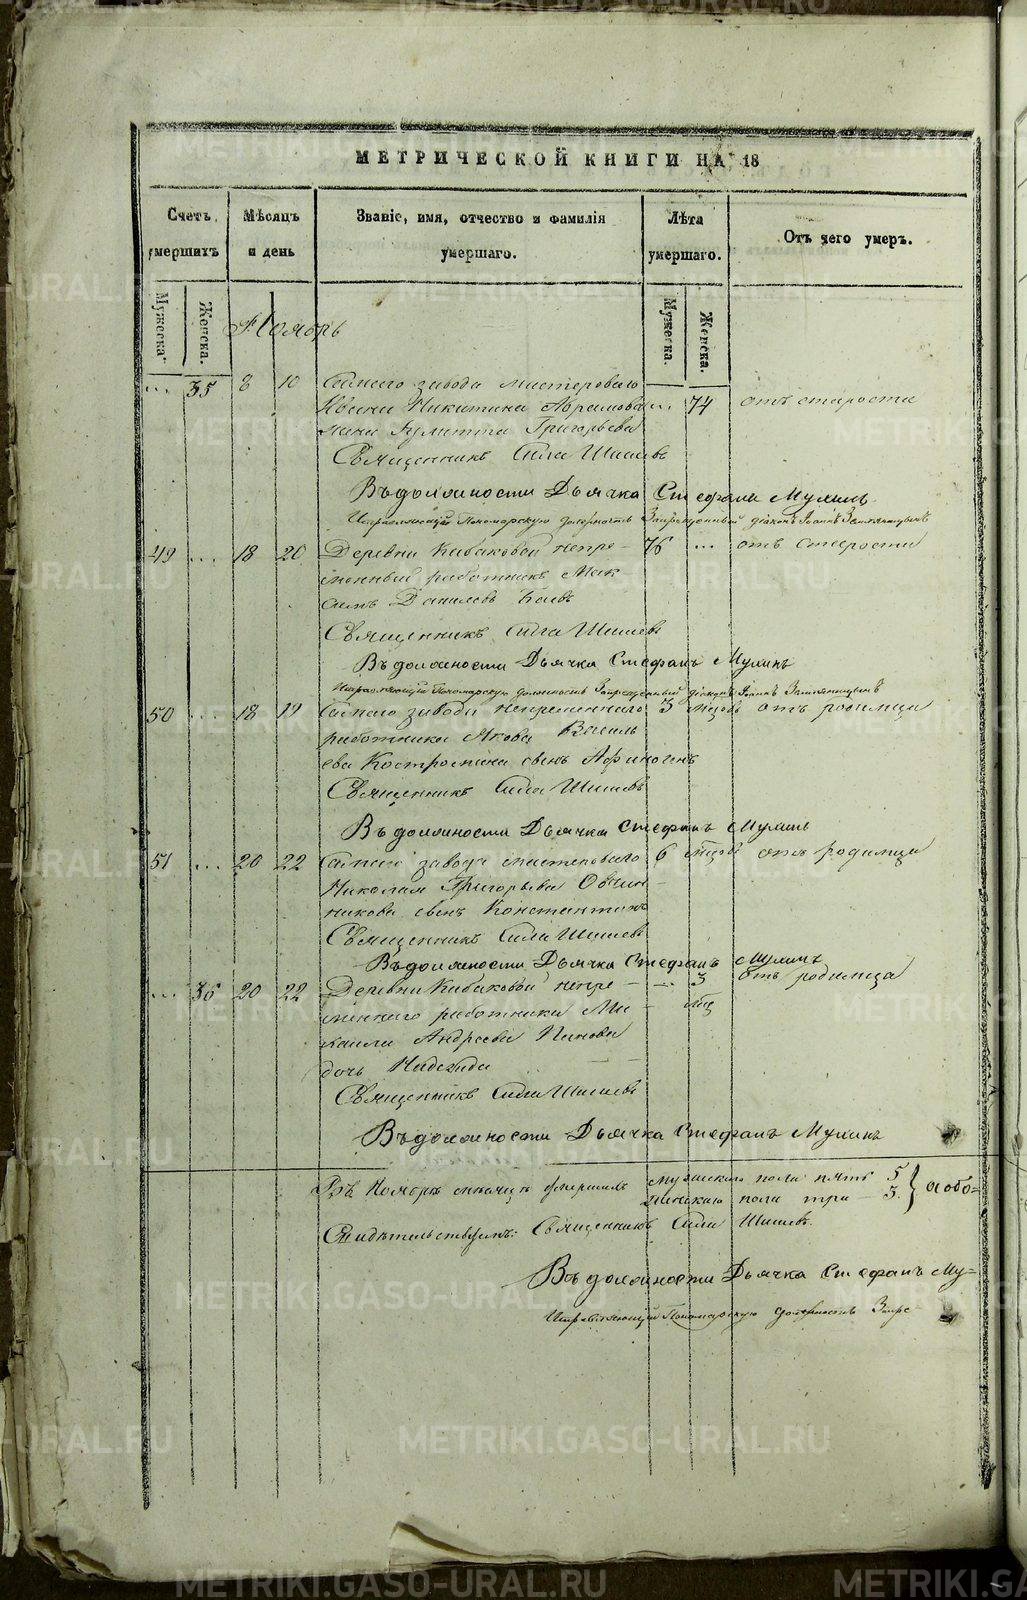 МЕТРИЧЕСКОЙ КНИГИ НА 18
Счетъ умершихъ
Мѣсяцъ и день
Званіе, имя, отчество и фамилія умершаго.
Лѣта умершаго.
Отъ чего умеръ.
Мужеска.
Женска.
Мужеска.
Женска.
Ноябрь
... 35 8 10 Самаго завода мастероваго ... 74 отъ старости
Никитина Абрамова
жена Григорьева
Священникъ Сила Шишевъ
Въ должности Дьячка Стефанъ Мухинъ
Исправляющій Пономарскую должность Запрещенный діаконъ Іоаннъ Земляницынъ
49 ... 18 20 Деревни Кибаковой непре- 76 ... отъ старости
менный работникъ Мак
симъ Даниловъ
Священникъ Сила Шишевъ
Въ должности Дьячка Стефанъ Мухинъ
Исправляющій Пономарскую должность Запрещенный діаконъ Іоаннъ Земляницынъ
50 ... 18 19 Самаго завода непременнаго 3 отъ родимца
работника Якова Василь
ева Костромина сынъ Афиногенъ
Священникъ Сила Шишевъ
Въ должности Дьячка Стефанъ Мухинъ
51 ... 20 22 Самаго завода мастероваго 6 отъ родимца
Николая Григорьева Овчин-
никова сынъ Константинъ
Священникъ Сила Шишевъ
Въ должности Дьячка Стефанъ Мухинъ
... 36 20 22 Деревни Кибаковой непре- ... 3 отъ родимца
меннаго работника Ми- мѣс
хаила Андреева Панова
дочь Надежда
Священникъ Сила Шишевъ
Въ должности Дьячка Стефанъ Мухинъ
Въ Ноябрѣ месяцѣ умершихъ мужескаго пола пять 5 } а обо=
женскаго пола три - 3
Свидѣтельствуемъ: Священникъ Сила Шишевъ.
Въ должности Дьячка Стефанъ Му=
Исправляющій Пономарскую должность Запре-
METRIKI.GASO-URAL.RU